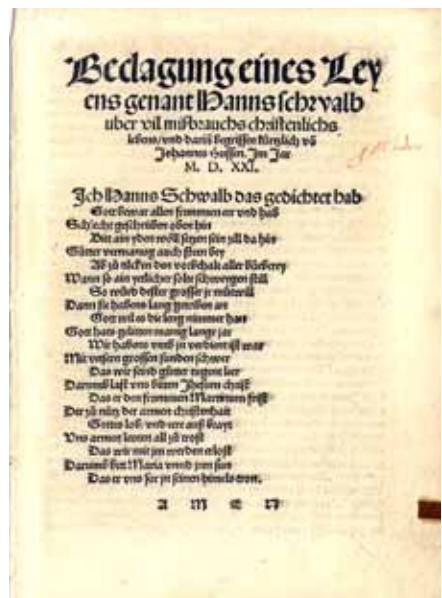 Beclagung eines Ley
ens genant Hanns schwalb
uber vil mißbrauchs christenlichs
lebens, und darin begriffen kürtzlich vō
Johannes Hussen. Im Jar
M. D. XXI.
Ich Hanns Schwalb das gedichtet hab
Gott bewar allen frummen eer und hab
Schlecht geschriben oben hin
Bitt ain yden wöll setzen sein zill da hin
Gütter vermanung auch sten bey
Wann so ain yetlicher solt schweygen still
So würd desster grosser jr mütwill
Dann sie habens lang getriben an
Gott wil es die leng nimmer han
Gott hats gelitten manig lange jar
Wir habens umb jn verdient ist war
Mit unsern grossen sunden schwer
Das wir seind gütter tugent leer
Darumb last uns bitten Jhesum christ
Das er den frummen Martinum frist
Der zü nutz der armen christenhait
Gottes lob, und eere auß brayt
Uns armen leuten all zü trost
Das wir mit jm werden erlost
Darumb bitt Maria unnd jren sun
Das er uns fier jn seinen himels tron.
A M E N